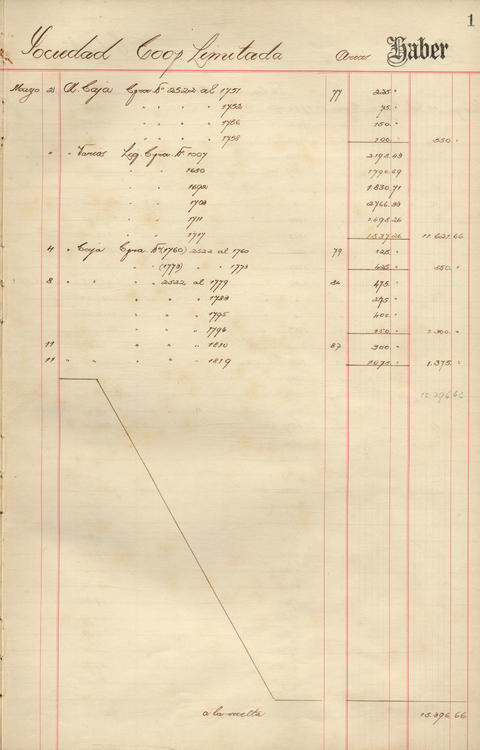 1
Sociedad Coop Limitada Haber
Mayo 2 A Caja Cpra Nº 2522 al 1751 77 225"
" " " " 1752 75"
" " " " 1756 150"
" " " " 1758 100" 550"
" " Varias Leg. Cpra Nº 1007 2198.43
" " 1680 1790.69
" " 1692 1.830.71
" " 1703
" " 1711 1.498.26
" " 1717 1.537.26 11.621.66
4 " Caja Cpra Nº (1760) 2522 al 1760 79 125"
" (1773) " " 1773 425" 550"
8 " " " " 2522 al 1779 84 475"
" " " 1783 275"
" " " 1795 400"
" " " 1796 150" 1.300"
11 " " " 1810 87 300"
11 " " " " " 1819 1075" 1.375"
15.396.66
a la vuelta 15.396.66